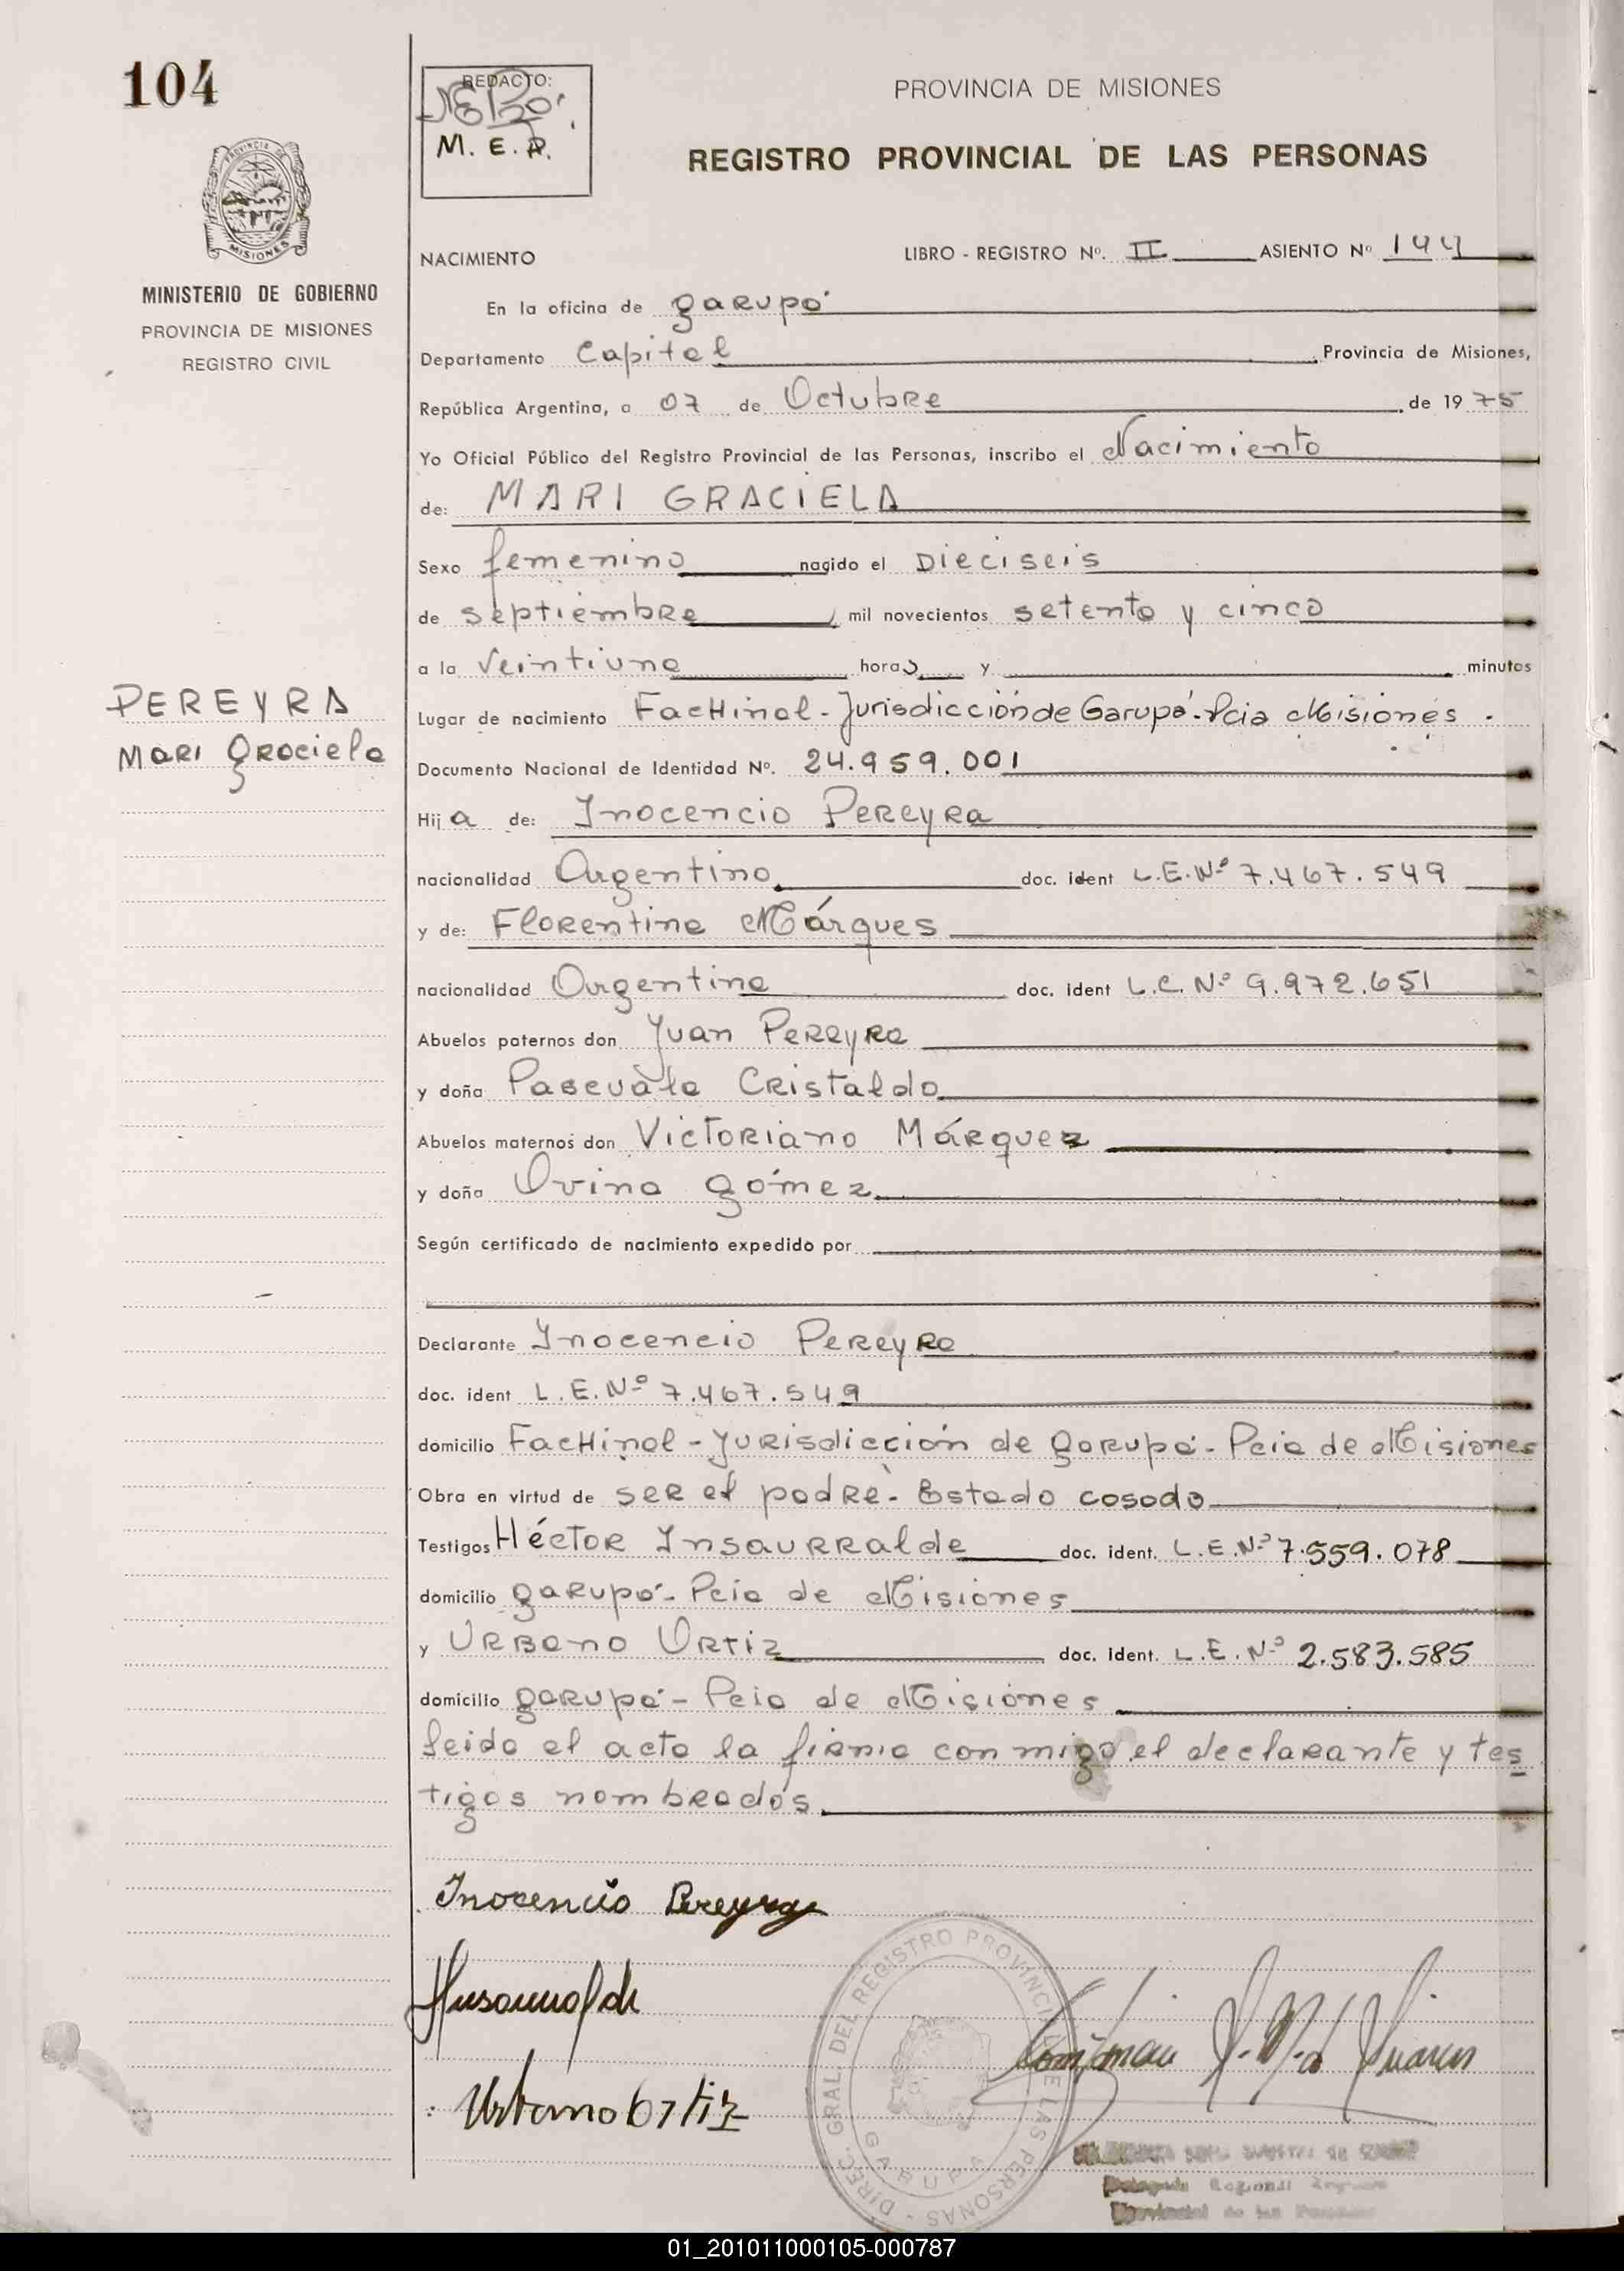 104
REDACTO:
M. E. P.
PROVINCIA DE MISIONES
REGISTRO PROVINCIAL DE LAS PERSONAS
PROVINCIA DE
MISIONES
MINISTERIO DE GOBIERNO
PROVINCIA DE MISIONES
REGISTRO CIVIL
NACIMIENTO LIBRO - REGISTRO Nº. II ASIENTO Nº 144
En la oficina de garupá
Departamento Capital Provincia de Misiones,
República Argentina, a 07 de Octubre de 1975
Yo Oficial Público del Registro Provincial de las Personas, inscribo el Nacimiento
de: MARI GRACIELA
Sexo femenino nacido el Dieciseis
de septiembre mil novecientos setenta y cinco
a la veintiuna horas y minutos
PEREYRA
Mari Graciela
Lugar de nacimiento FacHinal - Jurisdicción de Garupá - Pcia Misiones.
Documento Nacional de Identidad Nº. 24.959.001
Hija de: Inocencio Pereyra
nacionalidad Argentino doc. ident L.E. Nº 7.467.549
y de: Florentina Márques
nacionalidad Argentina doc. ident L.C. Nº 9.972.651
Abuelos paternos don Juan Pereyra
y doña Pascuala Cristaldo
Abuelos maternos don Victoriano Márquez
y doña Ovina gómez
Según certificado de nacimiento expedido por
Declarante Inocencio Pereyra
doc. ident L.E. Nº 7.467.549
domicilio FacHinal - Jurisdicción de garupá - Pcia de Misiones
Obra en virtud de ser el padre - Estado casado
Testigos Héctor Insaurralde doc. ident. L.E. Nº 7.559.078
domicilio garupá - Pcia de Misiones
y Urbano Ortiz doc. ident. L.E. Nº 2.583.585
domicilio garupá - Pcia de Misiones
leida el acta la firma con migo el declarante y tes
tigos nombrados
Inocencio Pereyra
HInsaurralde
Urbano Ortiz
DIREC. GRAL. DEL REGISTRO PROVINCIAL DE LAS PERSONAS - GARUPA
01_201011000105-000787